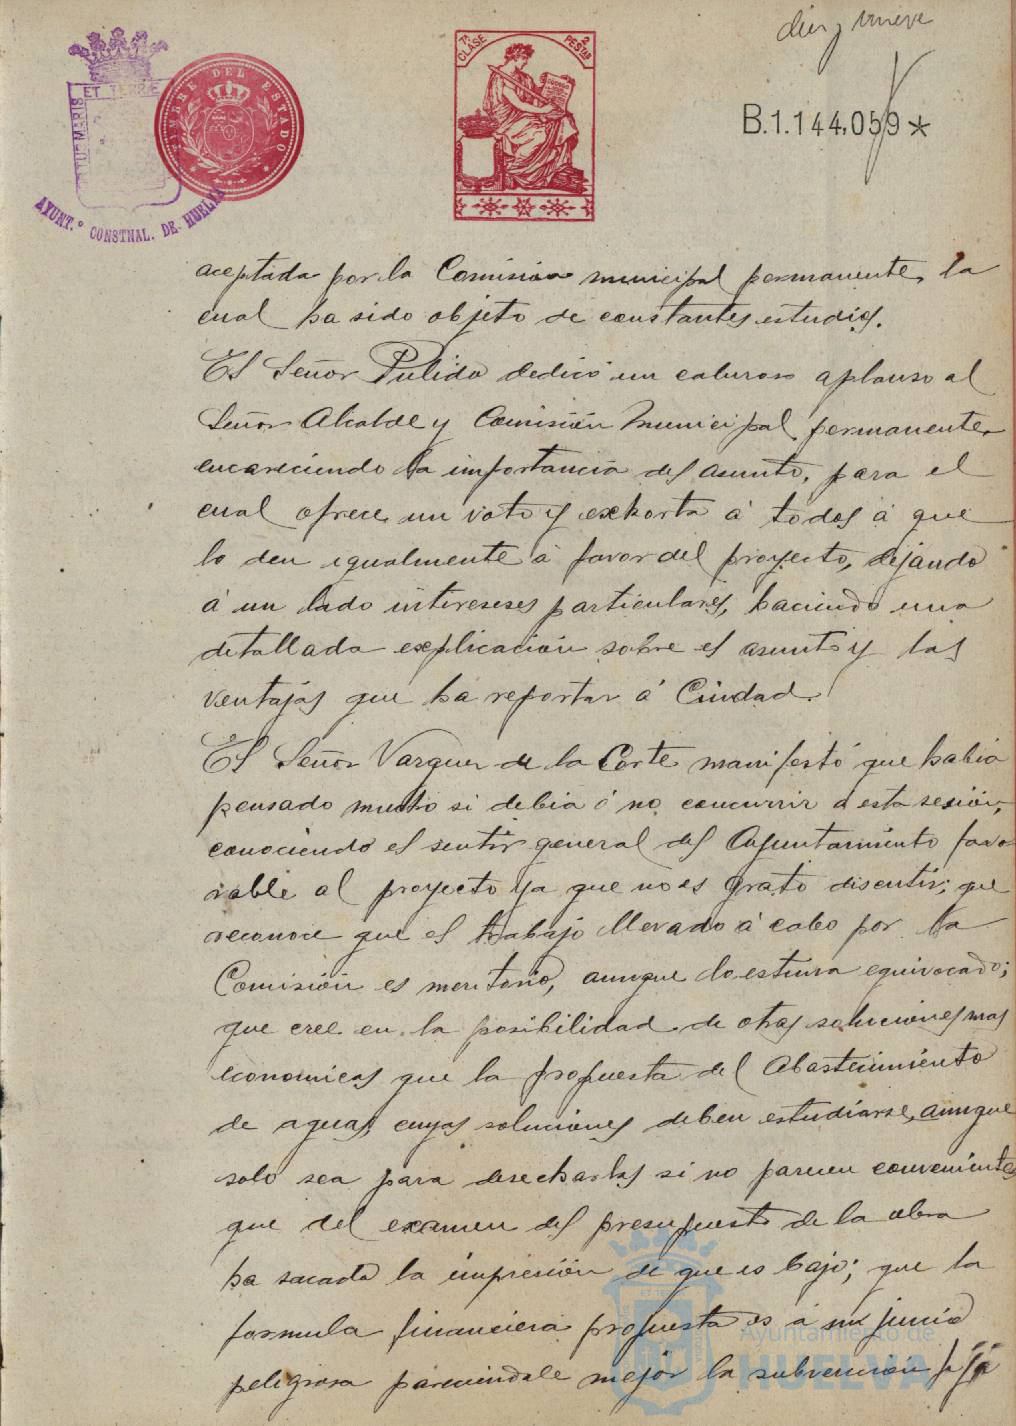 diez y nueve
7ª CLASE 2 PESTAS
TIMBRE DEL ESTADO
ET TERRÆ
AYUNT.º CONSTNAL. DE HUELVA
B.1.144,059*
aceptada por la Comisión municipal permanente, la
cual ha sido objeto de constantes estudios.
El Señor Pulido dedicó un caluroso aplauso al
Señor Alcalde y Comisión Municipal permanente,
encareciendo la importancia del asunto, para el
cual ofrece un voto y exhorta á todos á que
lo den igualmente á favor del proyecto, dejando
á un lado intereses particulares, haciendo una
detallada explicación sobre el asunto y las
ventajas que ha reportar á Ciudad.
El Señor Vazquez de la Corte manifestó que habia
pensado mucho si debia ó no concurrir a esta sesión,
conociendo el sentir general del Ayuntamiento favo
rable al proyecto ya que no es grato discutir; que
reconoce que el trabajo llevado á cabo por la
Comisión es meritorio, aunque lo estima equivocado;
que cree en la posibilidad de otras soluciones mas
economicas que la propuesta del Abastecimiento
de aguas, cuyas soluciones deben estudiarse, aunque
solo sea para desecharlas si no parecen convenientes
que del examen del presupuesto de la obra
ha sacado la impresión de que es bajo; que la
formula financiera propuesta es á su juicio
peligrosa pareciendole mejor la subvención fija
Ayuntamiento de
HUELVA